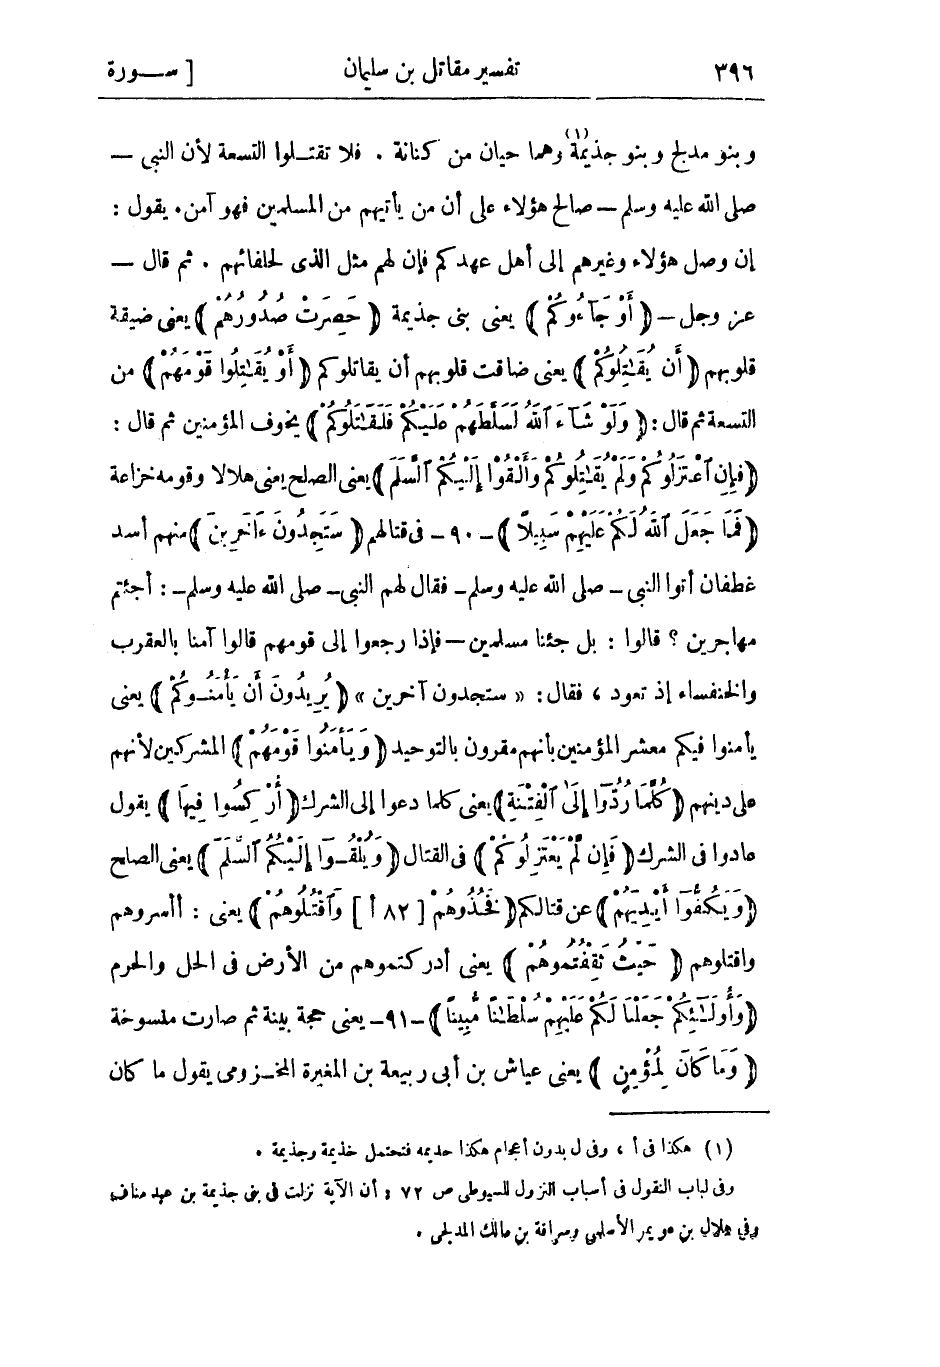 ٣٩٦ تفسير مقاتل بن سليمان [ ســورة
وبنو مدلج وبنو جذيمة(١) وهما حيان من كنانة . فلا تقتـلوا التسعة لأن النبى —
صلى الله عليه وسلم — صالح هؤلاء على أن من يأتيهم من المسلمين فهو آمن. يقول :
إن وصل هؤلاء وغيرهم إلى أهل عهدكم فإن لهم مثل الذى لحلفائهم . ثم قال —
عز وجل — ﴿ أَوْ جَآءُوكُمْ ﴾ يعنى بنى جذيمة ﴿ حَصِرَتْ صُدُورُهُمْ ﴾ يعنى ضيقة
قلوبهم ﴿ أَن يُقَـٰتِلُوكُمْ ﴾ يعنى ضاقت قلوبهم أن يقاتلوكم ﴿ أَوْ يُقَـٰتِلُوا قَوْمَهُمْ ﴾ من
التسعة ثم قال : ﴿ وَلَوْ شَآءَ ٱللَّهُ لَسَلَّطَهُمْ عَلَيْكُمْ فَلَقَـٰتَلُوكُمْ ﴾ يخوف المؤمنين ثم قال :
﴿ فَإِنِ ٱعْتَزَلُوكُمْ وَلَمْ يُقَـٰتِلُوكُمْ وَأَلْقَوْا إِلَيْكُمُ ٱلسَّلَمَ ﴾ يعنى الصلح يعنى هلالا وقومه خزاعة
﴿ فَمَا جَعَلَ ٱللَّهُ لَكُمْ عَلَيْهِمْ سَبِيلًا ﴾ — ٩٠ — فى قتالهم ﴿ سَتَجِدُونَ ءَاخَرِينَ ﴾ منهم أسد
غطفان أتوا النبى — صلى الله عليه وسلم — فقال لهم النبى — صلى الله عليه وسلم — : أجئتم
مهاجرين ؟ قالوا : بل جئنا مسلمين — فإذا رجعوا إلى قومهم قالوا آمنا بالعقرب
والخنفساء إذ تعود ، فقال : « ستجدون آخرين » ﴿ يُرِيدُونَ أَن يَأْمَنُـوكُمْ ﴾ يعنى
يأمنوا فيكم معشر المؤمنين بأنهم مقرون بالتوحيد ﴿ وَيَأْمَنُوا قَوْمَهُمْ ﴾ المشركين لأنهم
على دينهم ﴿ كُلَّمَا رُدُّوٓا إِلَى ٱلْفِتْنَةِ ﴾ يعنى كلما دعوا إلى الشرك ﴿ أُرْكِسُوا فِيهَا ﴾ يقول
عادوا فى الشرك ﴿ فَإِن لَّمْ يَعْتَزِلُوكُمْ ﴾ فى القتال ﴿ وَيُلْقُـوٓا إِلَيْكُمُ ٱلسَّلَمَ ﴾ يعنى الصلح
﴿ وَيَكُفُّوٓا أَيْدِيَهُمْ ﴾ عن قتالكم ﴿ فَخُذُوهُمْ [ ٨٢ أ ] وَٱقْتُلُوهُمْ ﴾ يعنى : أأسروهم
واقتلوهم ﴿ حَيْثُ ثَقِفْتُمُوهُمْ ﴾ يعنى أدركتموهم من الأرض فى الحل والحرم
﴿ وَأُولَـٰٓئِكُمْ جَعَلْنَا لَكُمْ عَلَيْهِمْ سُلْطَـٰنًا مُّبِينًا ﴾ — ٩١ — يعنى حجة بينة ثم صارت منسوخة
﴿ وَمَا كَانَ لِمُؤْمِنٍ ﴾ يعنى عياش بن أبى ربيعة بن المغيرة المخـزومى يقول ما كان
(١) هكذا فى أ ، وفى ل بدون أعجام هكذا حديمه فتحتمل خذيمة وجذيمة .
وفى لباب النقول فى أسباب النزول للسيوطى ص ٧٢ : أن الآية نزلت فى بنى جذيمة بن عبد مناف
وفى هلال بن عويمر الأسلمى وسراقة بن مالك المدلجى .